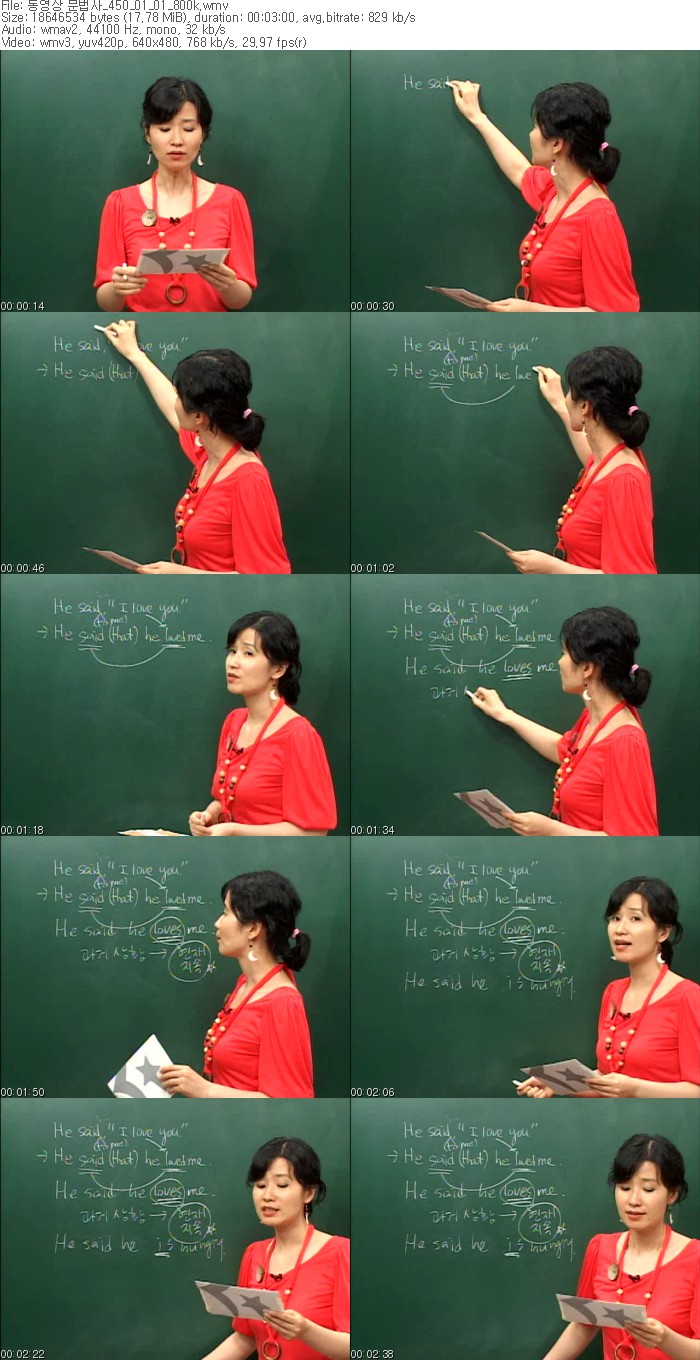 File: 동영상 문법사_450_01_01_800k.wmv
Size: 18646534 bytes (17.78 MiB), duration: 00:03:00, avg.bitrate: 829 kb/s
Audio: wmav2, 44100 Hz, mono, 32 kb/s
Video: wmv3, yuv420p, 640x480, 768 kb/s, 29.97 fps(r)
00:00:14
He said
00:00:30
He said, ove you"
→ He said (that)
00:00:46
He said, "I love you."
→ He said (that) he love
00:01:02
He said, "I love you."
→ He said (that) he loved me.
00:01:18
He said, "I love you."
→ He said (that) he loved me.
He said he loves me
과거
00:01:34
He said, "I love you."
→ He said (that) he loved me.
He said he loves me.
과거 → 현재
지속
00:01:50
He said, "I love you."
→ He said (that) he loved me.
He said he loves me.
과거 → 현재
지속
He said he is hungry.
00:02:06
He said, "I love you."
→ He said (that) he loved me.
He said he loves me.
과거 → 현재
지속
He said he is hungry.
00:02:22
He said, "I love you."
→ He said (that) he loved me.
He said he loves me.
과거 → 현재
지속
He said he is hungry.
00:02:38